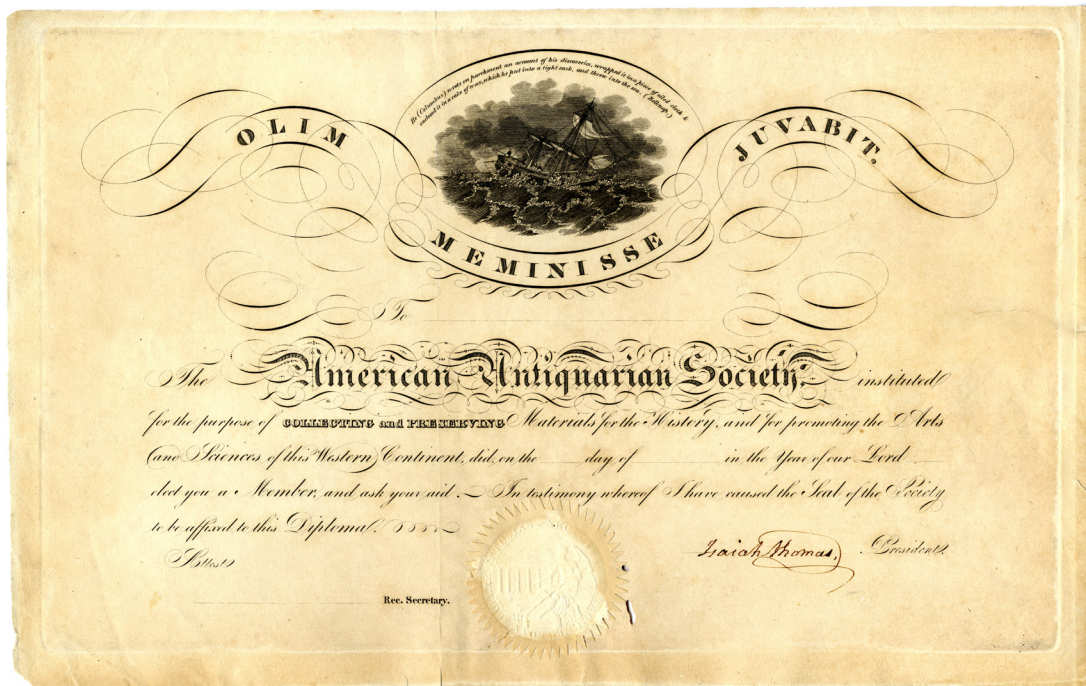 He (Columbus) wrote on parchment an account of his discoveries, wrapped it in a piece of oiled cloth &
enclosed it in a cake of wax, which he put into a tight cask, and threw into the sea. (Belknap.)
OLIM
JUVABIT.
MEMINISSE
To
The American Antiquarian Society, instituted
for the purpose of COLLECTING and PRESERVING Materials for the History, and for promoting the Arts
and Sciences of this Western Continent, did, on the day of in the Year of our Lord
elect you a Member, and ask your aid. In testimony whereof I have caused the Seal of the Society
to be affixed to this Diploma.
Isaiah Thomas, President.
Attest
Rec. Secretary.